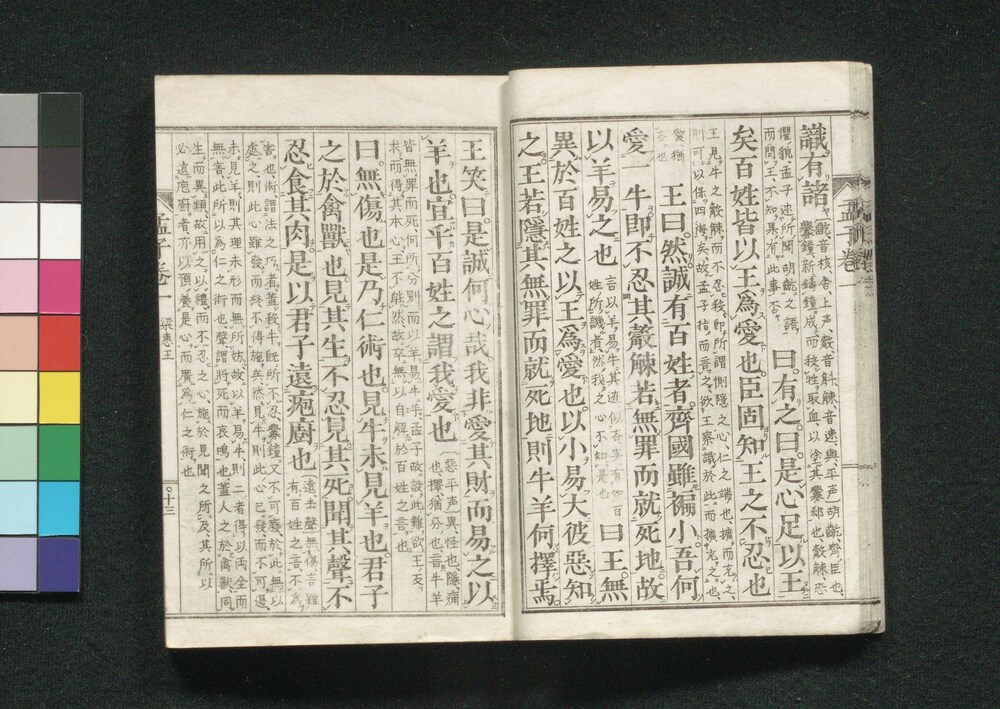 識有諸
齕音核、舍上声、觳音斛、觫音速、與平声、胡齕、齊臣也、
釁鐘、新鑄鐘成、而殺牲取血、以塗其釁郄也、觳觫、恐
懼貌、孟子述所聞胡齕之語、
而問王、不知果有此事否、
曰有之。曰是心足以王
矣百姓皆以王為愛也臣固知王之不忍也
王見牛之觳觫而不忍殺、即所謂惻隱之心、仁之端也、擴而充之、
則可以保四海矣、故孟子指而言之、欲王察識於此、而擴充之也、
愛、猶
吝也
王曰。然誠有百姓者。齊國雖褊小吾何
愛一牛即不忍其觳觫若無罪而就死地故
以羊易之也
言以羊易牛、其迹似吝、實有如百
姓所譏者、然我之心不如是也
曰王無
異於百姓之以王為愛也以小易大彼惡知
之王若隱其無罪而就死地則牛羊何擇焉。
王笑曰。是誠何心哉我非愛其財而易之以
羊也宜乎百姓之謂我愛也
惡平声、異、怪也、隱、痛
也、擇、猶分也、言牛羊
皆無罪而死、何所分別、而以羊易牛乎、孟子故設此難、欲王反
求而得其本心、王不能然、故卒無以自解於百姓之言也
曰。無傷也是乃仁術也。見牛未見羊也。君子
之於禽獸也見其生不忍見其死。聞其聲不
忍食其肉。是以君子遠庖廚也
遠去聲、無傷、言雖
有百姓之言、不為
害也、術、謂法之巧者、蓋殺牛既所不忍、釁鐘又不可廢、於此無以
處之、則此心雖發、而終不得施矣、然見牛、則此心已發、而不可遏、
未見羊、則其理未形、而無所妨、故以羊易牛、則二者得以両全而
無害、此所以為仁之術也、聲、謂將死而哀鳴也、蓋人之於禽獸、同
生而異類、故用之以禮、而不忍之心、施於見聞之所及、其所以
必遠庖廚者、亦以預養是心、而廣為仁之術也
孟子卷一
梁惠王
○十三
孟子卷一